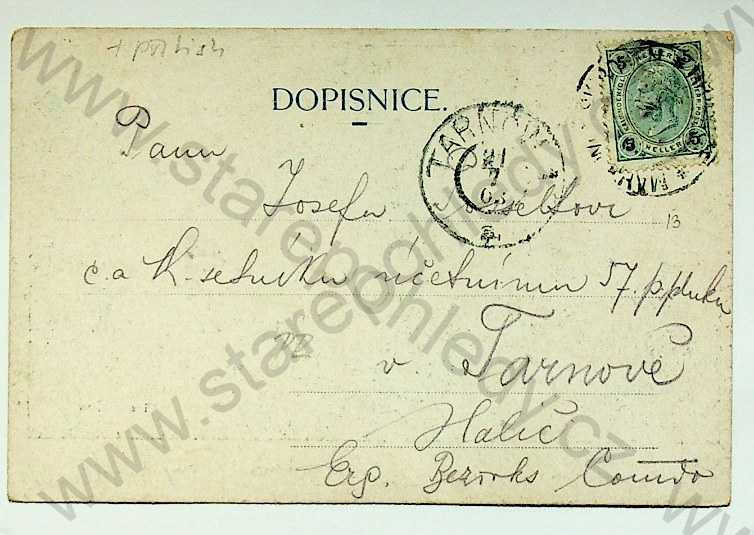 DOPISNICE.
Panu
Josefu
c. a k. setníku účetnímu 57. p. pluku
v Tarnově
Halič
Erg. Bezirks Comdo
TARNÓW
21
7
03
5 5
5 HELLER 5
13
www.starepohledy.cz